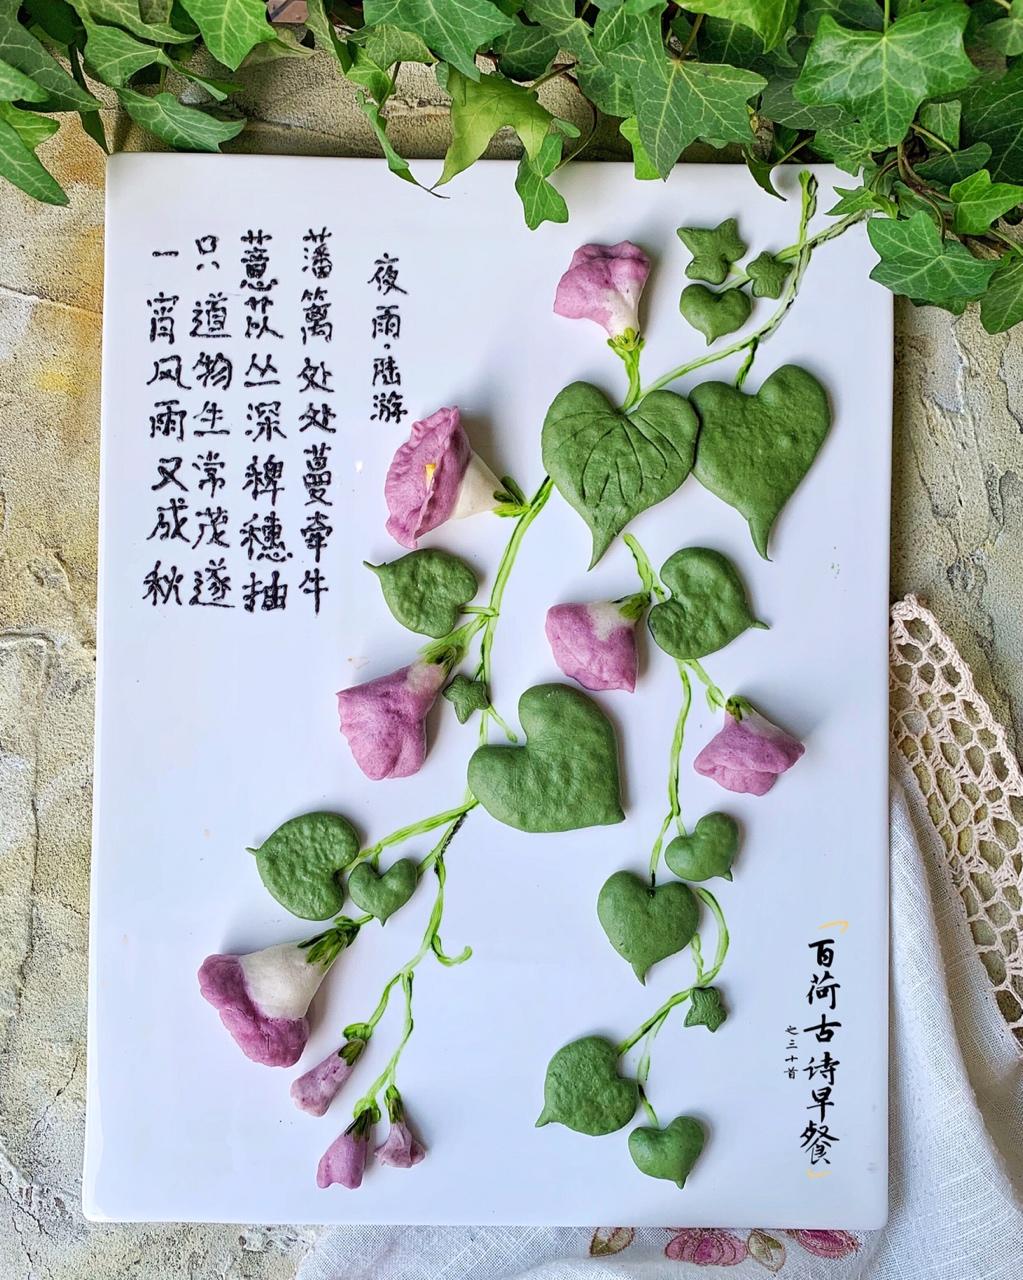 夜雨·陆游
藩篱处处蔓牵牛
薏苡丛深稗穗抽
只道物生常茂遂
一宵风雨又成秋
「百荷古诗早餐」
之三十首